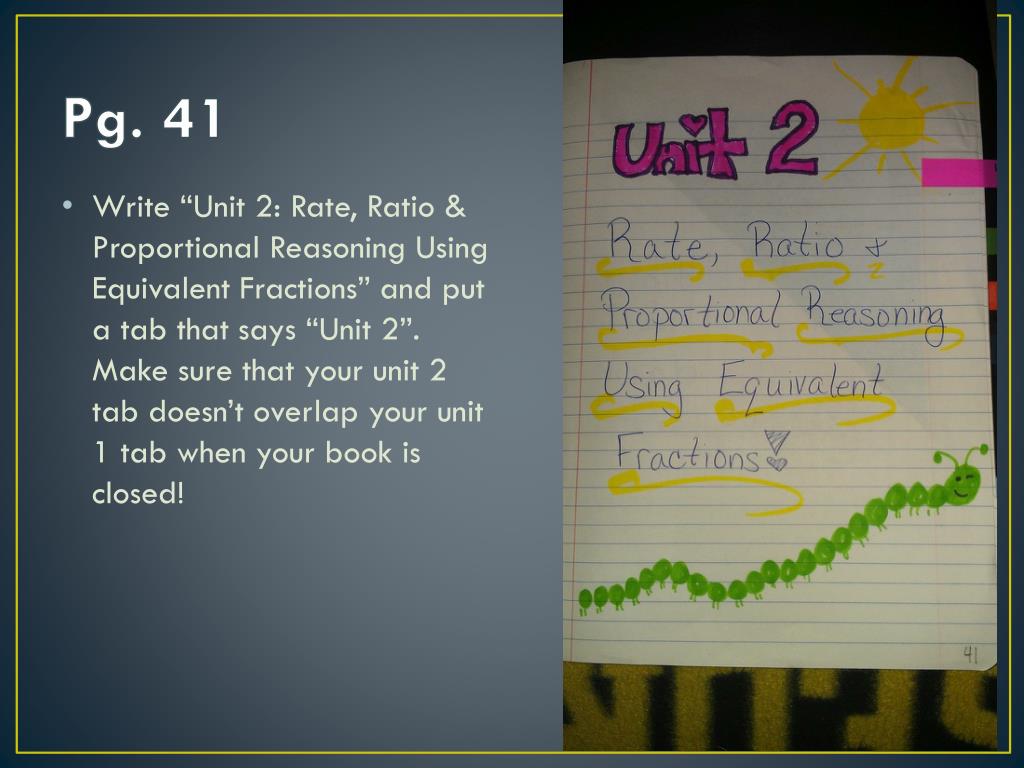 Pg. 41
• Write “Unit 2: Rate, Ratio &
Proportional Reasoning Using
Equivalent Fractions” and put
a tab that says “Unit 2”.
Make sure that your unit 2
tab doesn’t overlap your unit
1 tab when your book is
closed!
Unit 2
Rate, Ratio &
Proportional Reasoning
Using Equivalent
Fractions!
41